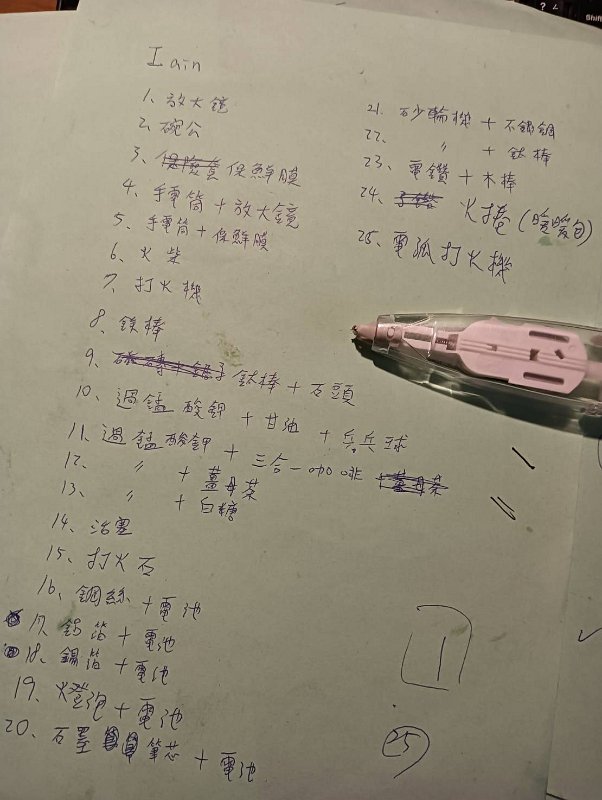 Iain
1、放大鏡
2、碗公
3、保鮮膜
4、手電筒+放大鏡
5、手電筒+保鮮膜
6、火柴
7、打火機
8、鎂棒
9、鈦棒+石頭
10、過錳酸鉀+甘油+乒乓球
11、過錳酸鉀+三合一咖啡
12、〃+薑母茶
13、〃+白糖
14、活塞
15、打火石
16、鋼絲+電池
17、鋁箔+電池
18、錫箔+電池
19、燈泡+電池
20、石墨筆芯+電池
21、砂輪機+不鏽鋼
22、〃+鈦棒
23、電鑽+木棒
24、火捲(暖暖包)
25、電弧打火機
1
25
Shift